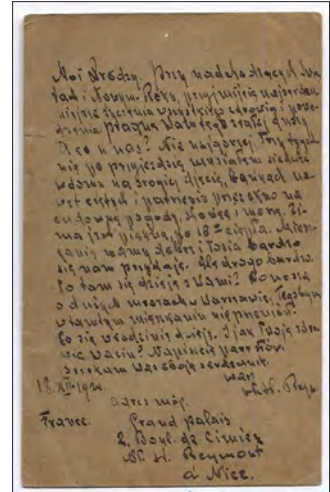 Moi Drodzy. Przy nadchodzących Świę
tach i Nowym-Roku, przyjmijcie najserdecz
niejsze życzenia wszystkiego zdrowia i powo
dzenia. pragnę Wam tego z całej duszy
A co u nas? Nie najgorzej. Trzy tygod
nie po przyjeździe musiałem siedzieć
w domu na srogiej djecie,
i patrzeć przez okno na
cudowną pogodę, słońce i morze. Zi
ma jest piękna, do 18° ciepła. Miesz
kanie mamy dobre i Tosia bardzo
się nam przydaje. Ale drogo bardzo.
Co tam się dzieje z Wami? Donoszą
o dużych mrozach w Warszawie.
w tamtym mieszkaniu nie
Co się u dzieje. I jak Twoje zdro
wie Waciu? Napiszcie parę słów.
Ściskam Was oboje serdecznie
Wasz
Wł. St. Reym
18. XII-192
adres mój.
France. Grand Palais
2. Boul. de Cimiez
St. Reymont
à Nice.